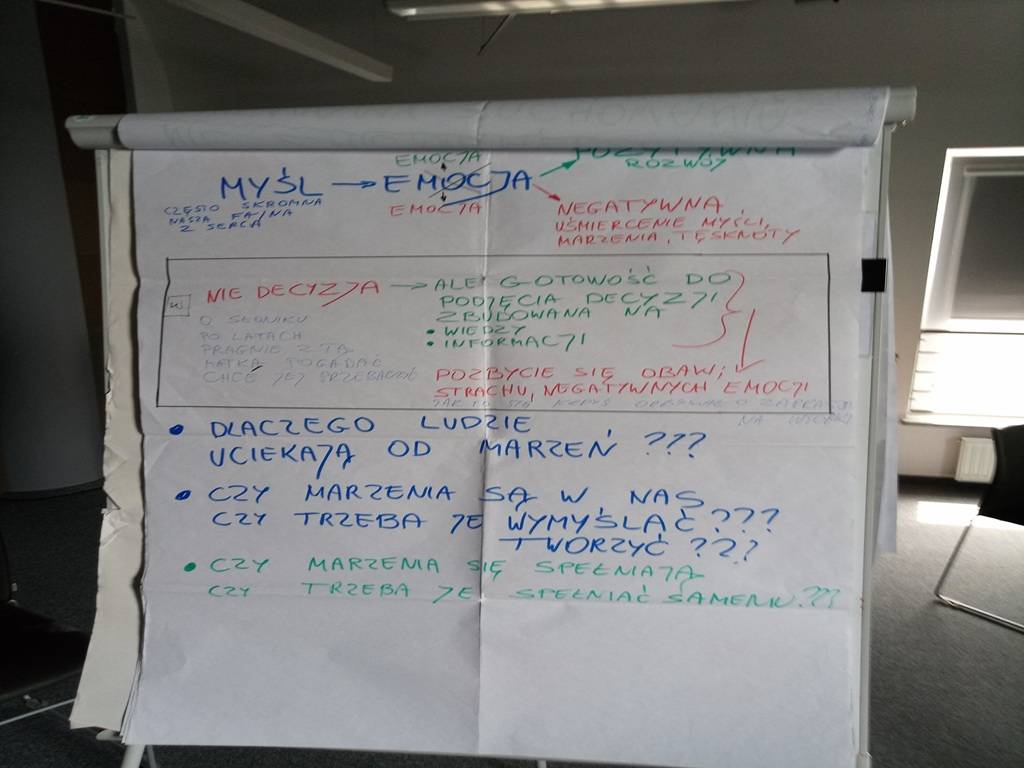 EMOCJA
POZYTYWNA
ROZWÓJ
MYŚL → EMOCJA
CZĘSTO SKROMNA
NASZA FAJNA
Z SERCA
EMOCJA
NEGATYWNA
UŚMIERCENIE MYŚLI,
MARZENIA, TĘSKNOTY
NIE DECYZJA → ALE GOTOWOŚĆ DO
PODJĘCIA DECYZJI
ZBUDOWANA NA
• WIEDZY
• INFORMACJI
O SŁONIKU
PO LATACH
PRAGNIE Z TĄ
MATKĄ POGADAĆ
CHCE JEJ PRZEBACZYĆ
POZBYCIE SIĘ OBAW,
STRACHU, NEGATYWNYCH EMOCJI
NA
• DLACZEGO LUDZIE
UCIEKAJĄ OD MARZEŃ ???
• CZY MARZENIA SĄ W NAS
CZY TRZEBA JE WYMYŚLAĆ ???
TWORZYĆ ???
• CZY MARZENIA SIĘ SPEŁNIAJĄ
CZY TRZEBA JE SPEŁNIAĆ SAMEMU. ???